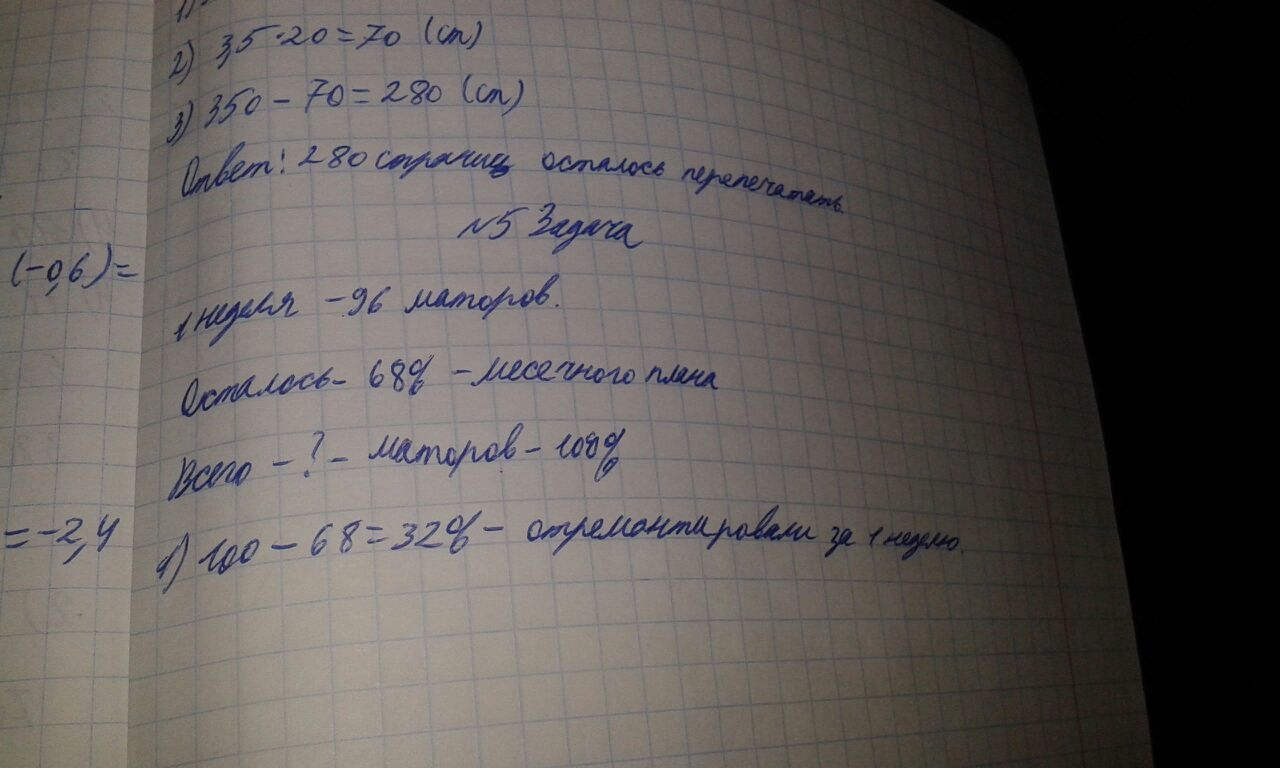 2) 3,5 · 20 = 70 (ст)
3) 350 - 70 = 280 (ст)
Ответ: 280 страниц осталось перепечатать.
№5 Задача
(-0,6) =
1 неделя - 96 маторов.
Осталось - 68% - месечного плана
Всего - ? - маторов - 100%
= -2,4
1) 100 - 68 = 32% - отремонтировали за 1 неделю.